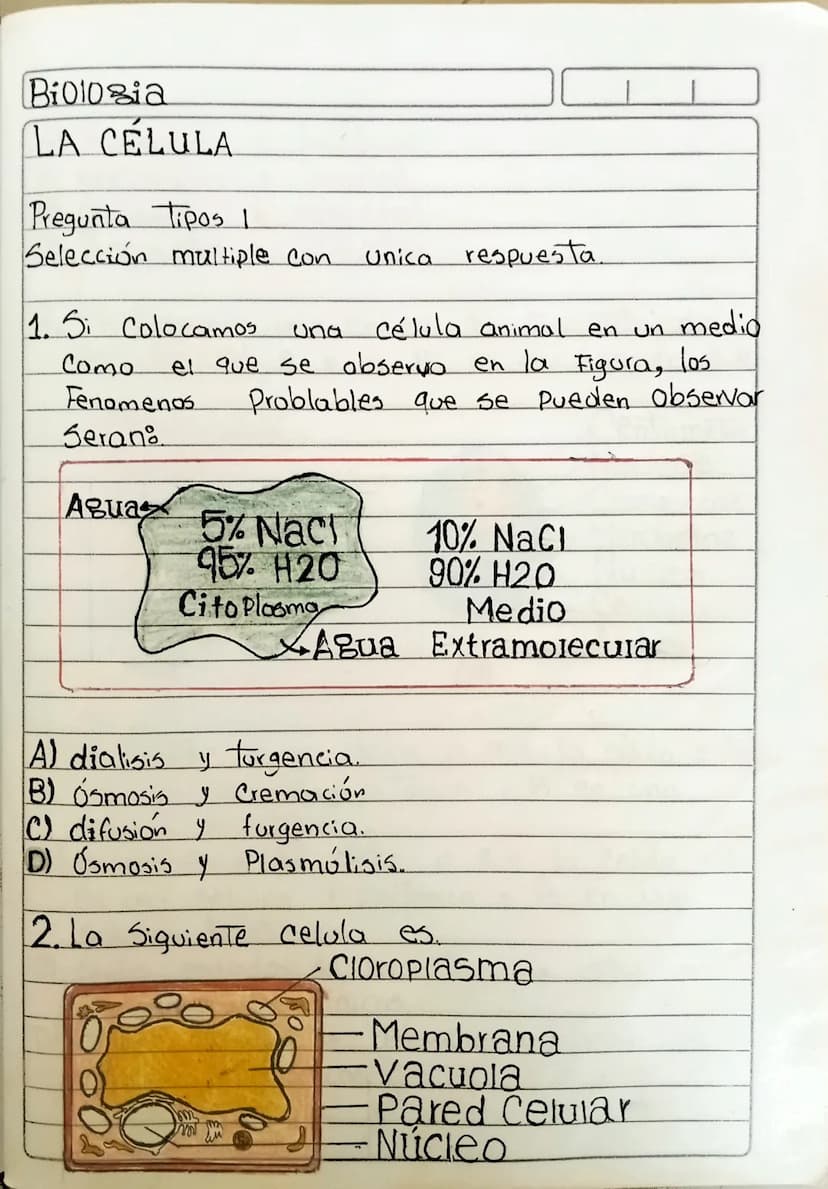 Biologia
LA CÉLULA
Pregunta Tipos 1
Selección multiple con unica respuesta.
1. Si Colocamos una célula animal en un medio
Como el que se observa en la Figura, los
Fenomenos Problables que se Pueden observar
Seran:
Agua
5% NaCl
95% H2O
Citoplasma
Agua
10% NaCl
90% H2O
Medio
Extramolecular
A) dialisis y turgencia.
B) Ósmosis y Cremación
C) difusión y furgencia.
D) Ósmosis y Plasmólisis.
2. La Siguiente celula es.
Cloroplasma
Membrana
Vacuola
Pared Celular
Núcleo